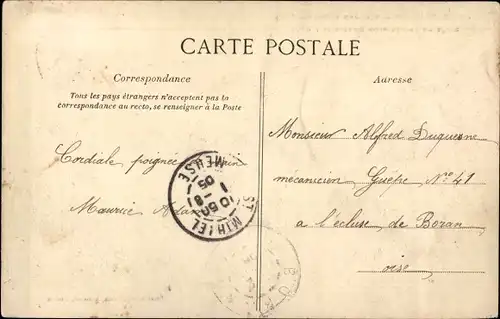 CARTE POSTALE
Correspondance
Tous les pays étrangers n'acceptent pas la
correspondance au recto, se renseigner à la Poste
Cordiale poignée main
Maurice
ST MIHIEL
MEUSE
Adresse
Monsieur Alfred Duquesne
mécanicien Guêpe N° 41
a l'écluse de Boran
oise